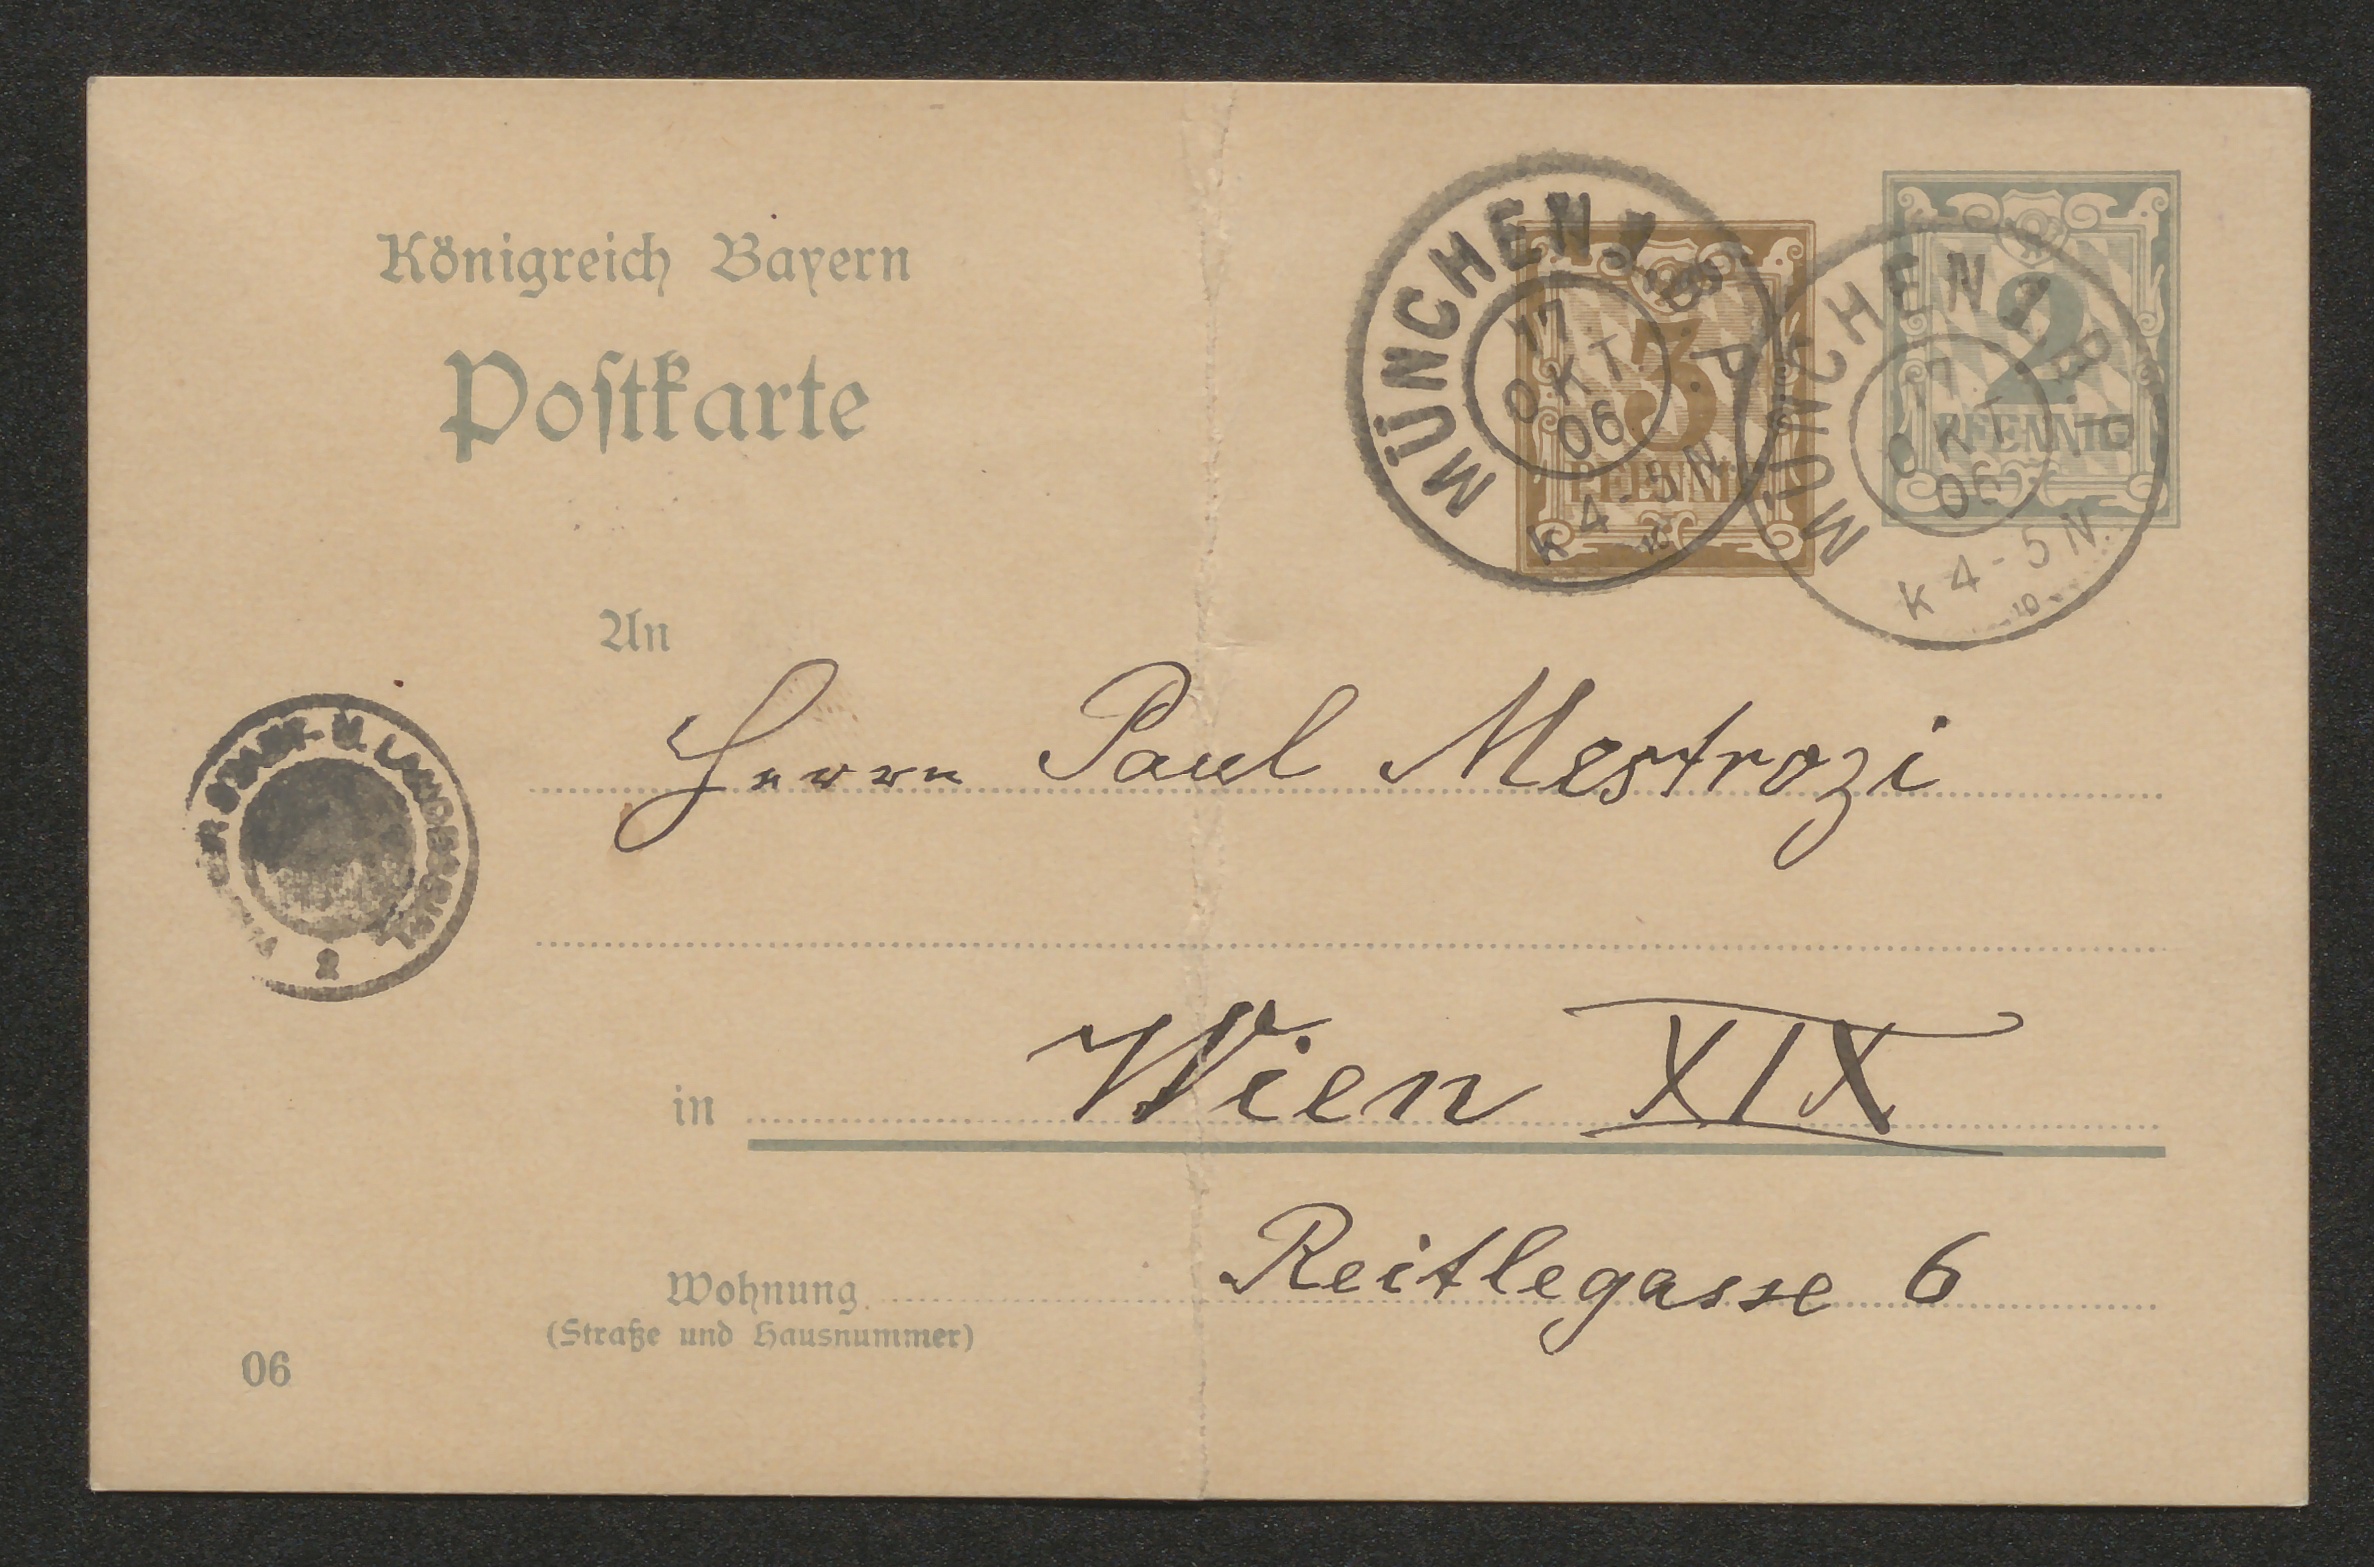 Königreich Bayern
Postkarte
MÜNCHEN I. B. P.
17
OKT
06
K 4-5 N.
3
PFENNIG
MÜNCHEN I. B. P.
17
OKT
06
K 4-5 N.
2
PFENNIG
An
Herrn Paul Mestrozi
STADT- U. LANDES
2
in Wien XIX
Wohnung Reitlegasse 6
(Straße und Hausnummer)
06